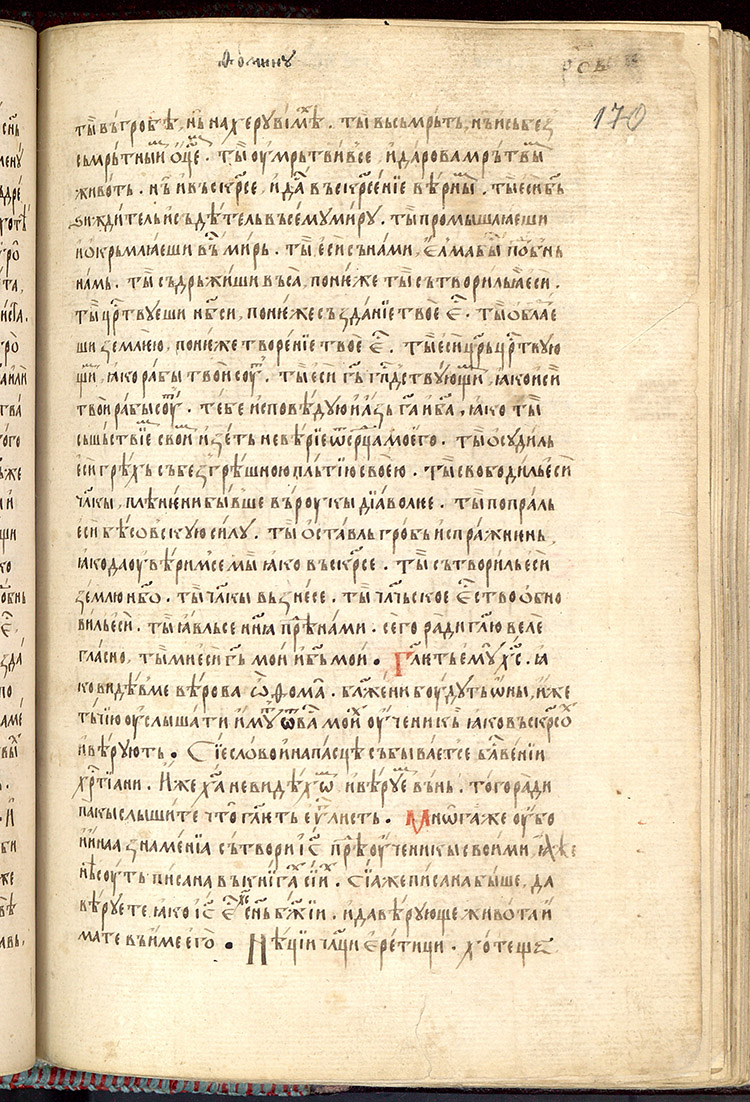 ѳомину
рѡв
170
ты въ гробѣ, нь на херувімѣ. ты въ съмрьть, нѣиси без
съмрьтныи ѡче. ты оумрьтви все, и дарова мрьтвы
животь. нѣ и въскрсе, и да въскрсеніе вѣрны. ты еси бъ
зиждитель и съдѣтель въсему миру. ты промышлꙗеши
и окрьмлꙗеши въ мирь. ты еси съ нами,
намь. ты съдрьжиши въса, понѥже ты сътвориль еси.
ты цртвуеши нбси, понѥже създаніе твое е. ты облае
ши землею, понѥже твореніе твое е. ты еси црь цртвую
щи, ꙗко рабы твои соу. ты еси гь гпдствующи, ꙗко
твои рабы соу. тебе исповѣдую и азь га и ба, ꙗко ты
съшьствіе свои изеть невѣріе ѿ срца моего. ты осудиль
еси грѣхь съ безгрѣшною пльтію своею. ты свободиль еси
члкы, плѣнени бывше въ роукы діаволѥ. ты попраль
еси бѣсовскую силу. ты оставль гробь испражнень,
ꙗко да оувѣримсе мы ꙗко въскрсе. ты сътвориль еси
землю и нбо. ты члкы възнесе. ты члчьское ество обно
виль еси. ты ꙗвльсе ннꙗ прѣ нами. сего ради глю веле
гласно, ты мнѣ еси гь мои и бь мои. Глть ему хс. ꙗ
ко видѣвь ме вѣрова ѡ ѳома. блжени боудуть ѡны, иже
тьчію оуслышати имуть ѿ ва мои оученикь ꙗко въскрсо
и вѣрують. Сіе слово и на насъ же събываетсе блвеніи
хртіани. Иже ха не видѣхѡ, и вѣруе вънь. того ради
пакы слышите что глть еулисть. Мнѡга же оубо
и ина знаменіа сътвори іс прѣ оученикы своими, ꙗже
нѣсоуть писана въ книга сіи. Сіа же писана быше, да
вѣруете ꙗко іс е хс снь бжіи. и да вѣрующе живот и
мате въ име его. Нѣціи члци еретици. хотеще